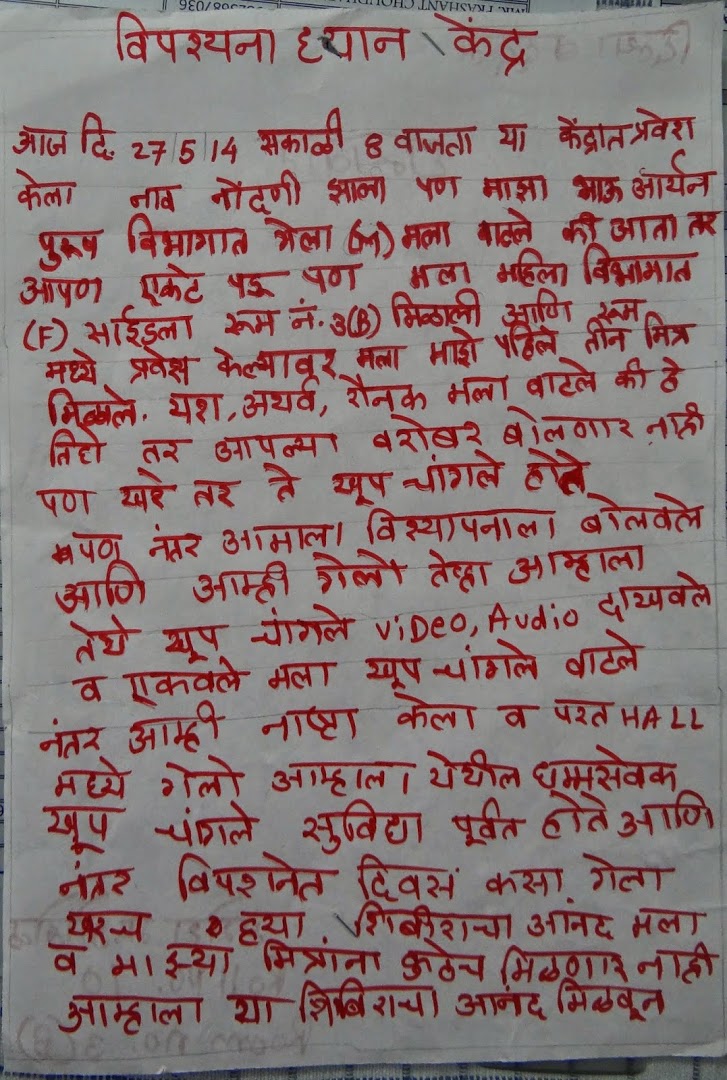 विपश्यना ध्यान केंद्र
आज दि. 27/5/14 सकाळी 8 वाजता या केंद्रात प्रवेश
केला नाव नोंदणी झाला पण माझा भाऊ आर्यन
पुरूष विभागात गेला (M) मला वाटले की आता तर
आपण एकटे पडू पण मला महिला विभागात
(F) साईडला रूम नं. 3(B) मिळाली आणि रूम
मध्ये प्रवेश केल्यावर मला माझे पहिले तीन मित्र
मिळाले. यश, अथर्व, रौनक मला वाटले की हे
तिघे तर आपल्या बरोबर बोलणार नाही
पण खरे तर ते खूप चांगले होते
पण नंतर आमाला विश्यापनाला बोलवले
आणि आम्ही गेलो तेव्हा आम्हाला
तेथे खूप चांगले ViDeo, Audio दाखवले
व एकवले मला खूप चांगले वाटले
नंतर आम्ही नाष्टा केला व परत HALL
मध्ये गेलो आम्हाला येथील धम्मसेवक
खूप चांगले सुविधा पूर्वत होते आणि
नंतर विपशनेत दिवस कसा गेला
खरच ह्या शिबीराचा आनंद मला
व माझ्या मित्रांना कुठेच मिळणार नाही
आम्हाला या शिबिराचा आनंद मिळवून